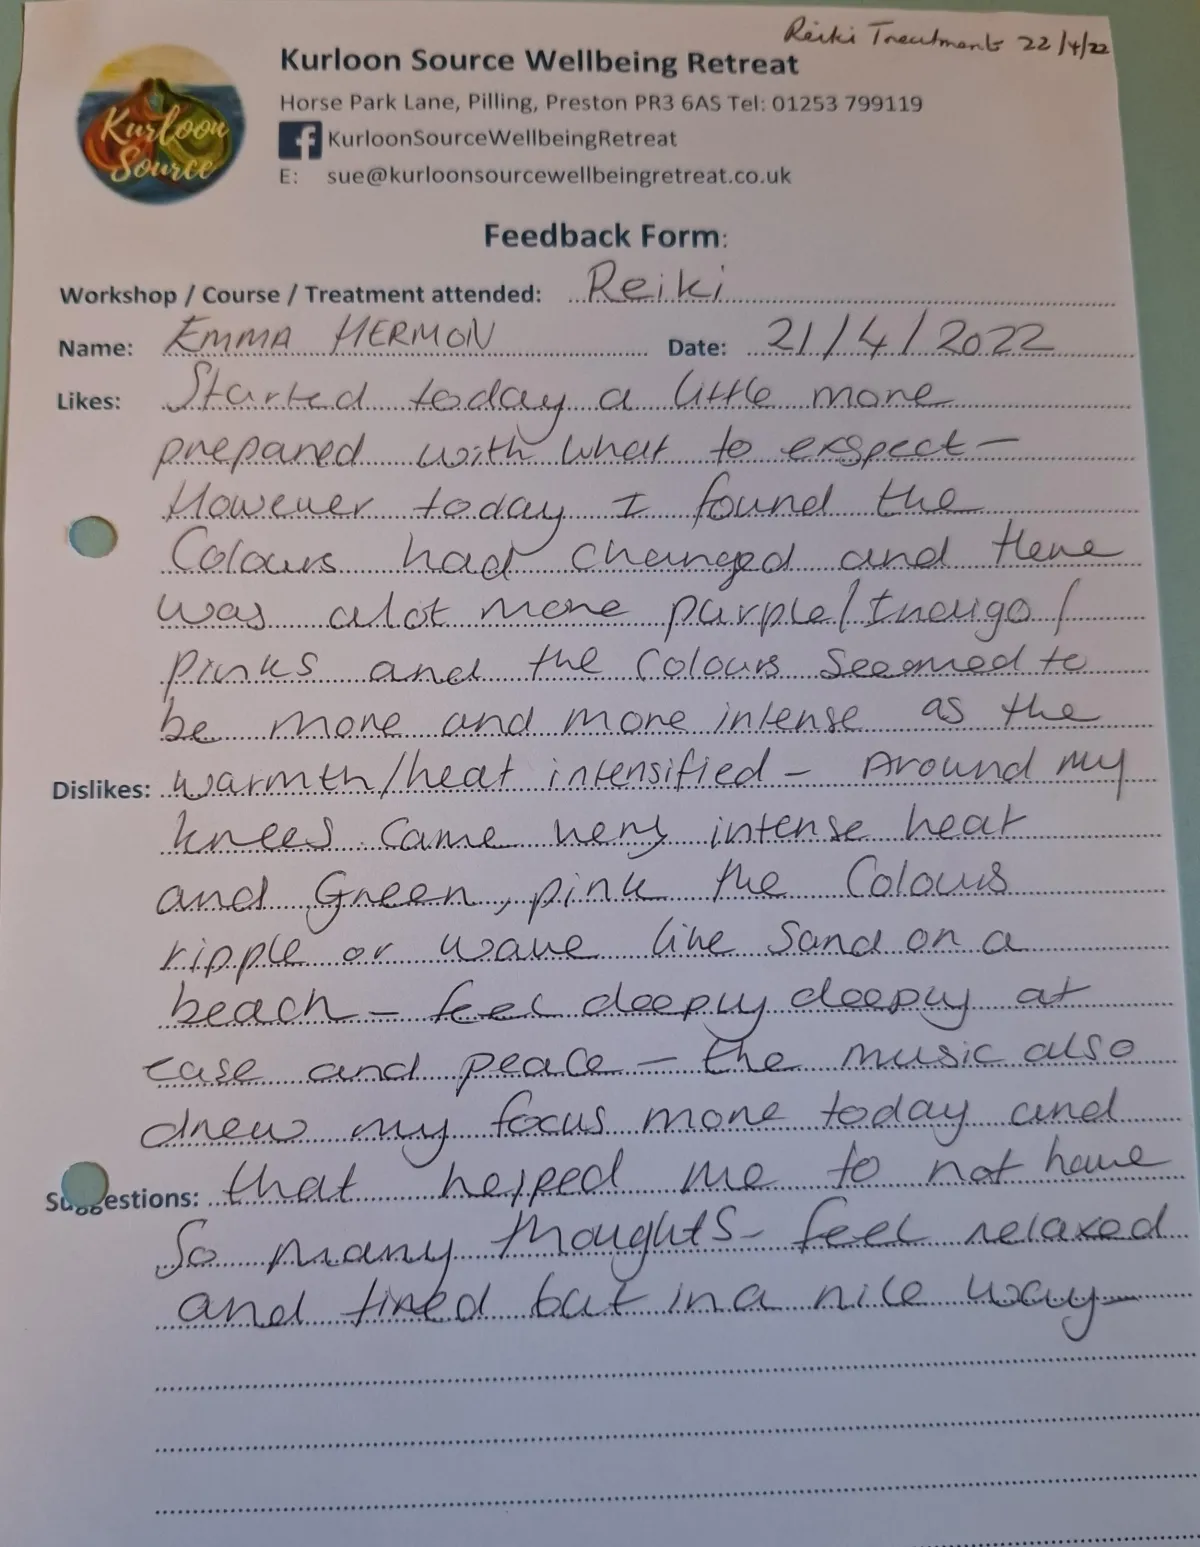 Reiki Treatment 22/4/22
Kurloon Source Wellbeing Retreat
Horse Park Lane, Pilling, Preston PR3 6AS Tel: 01253 799119
f KurloonSourceWellbeingRetreat
E: sue@kurloonsourcewellbeingretreat.co.uk
Kurloon
Source
Feedback Form:
Workshop / Course / Treatment attended: Reiki
Name: EMMA HERMON Date: 21/4/2022
Likes: Started today a little more
prepared with what to exspect –
However today I found the
Colours had changed and there
was alot more purple/Indigo/
pinks and the colours seemed to
be more and more intense as the
Dislikes: warmth/heat intensified – Around my
knees came very intense heat
and Green, pink the Colours
ripple or wave like Sand on a
beach – feel deeply deeply at
ease and peace – the music also
drew my focus more today and
Suggestions: that helped me to not have
So many thoughts – feel relaxed
and tired but in a nice way